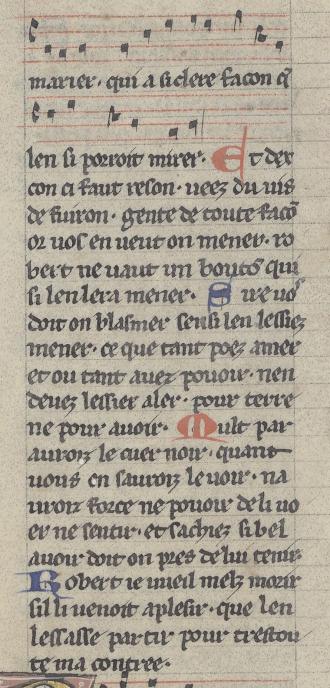 marier · qui a si clere facon q̃
len si porroit mirer · Et dex
con ci faut reson · veez du uis
de fuiron · gente de toute facõ
or uos en ueut on mener · ro
bert ne uaut un boutõ qui
si len lera mener · Sire uo⁹
doit on blasmer sensi len lessiez
mener · ce que tant poez amer
et ou tant auez pouoir · nen
deuez lessier aler · pour terre
ne pour auoir · Mult par
auroiz le cuer noir · quant
uous en sauroiz le uoir · na
uroiz force ne pouoir de li uo
er ne sentir · et sachiez si bel
auoir doit on pres de lui tenir
Robert ie uueil melz morir
sil li uenoit a plesir · que len
lessasse partir pour trestou
te ma contree ·